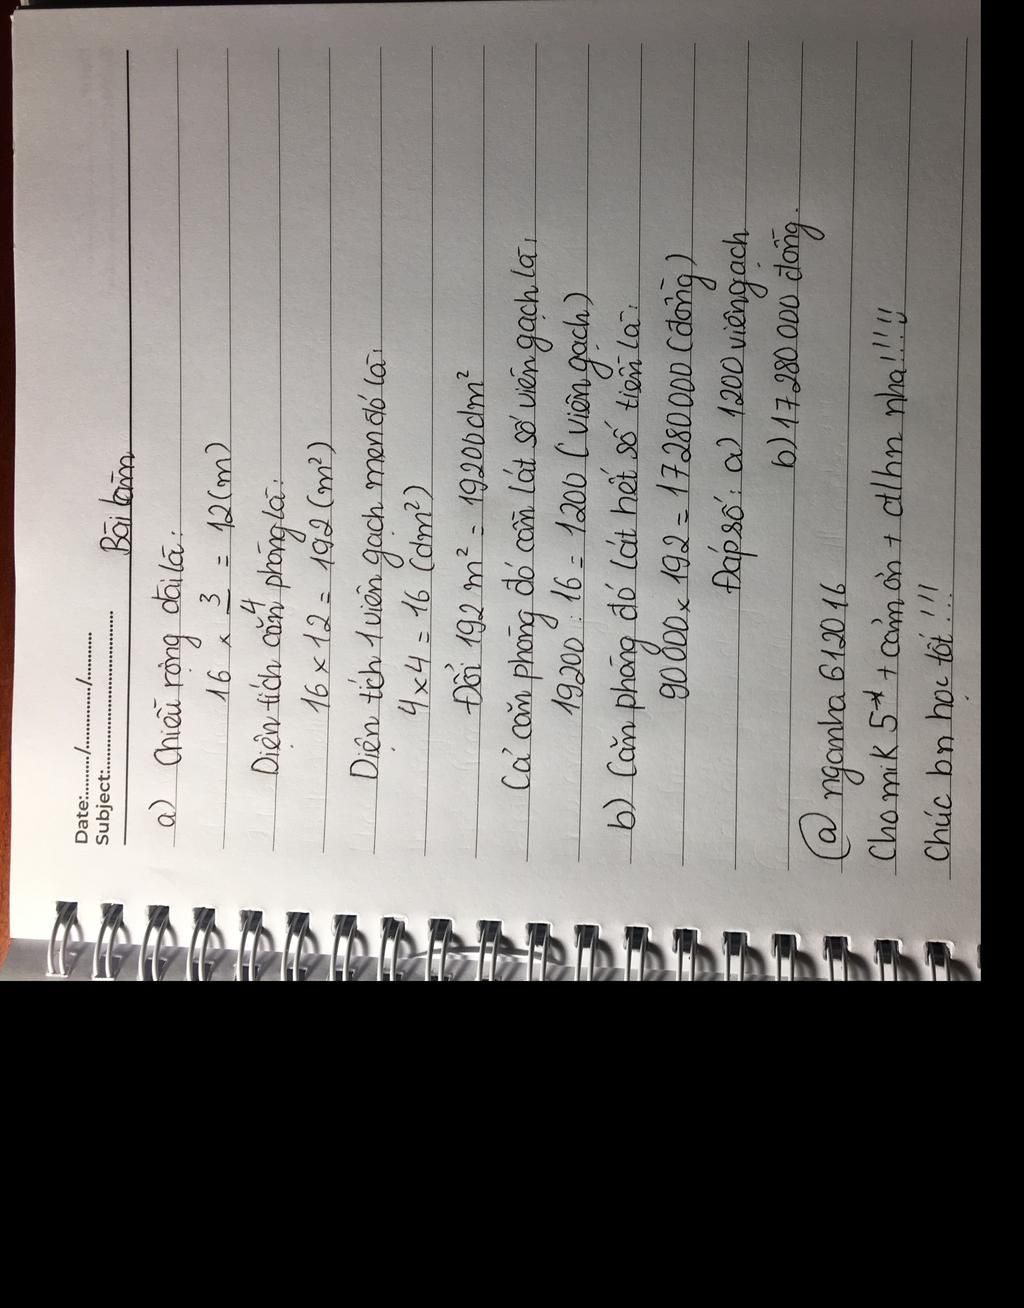 Date:........../............../..........
Subject:...................................
Bài làm
a) Chiều rộng dài là:
16 × 3/4 = 12 (m)
Diện tích căn phòng là:
16 × 12 = 192 (m²)
Diện tích 1 viên gạch men đó là:
4 × 4 = 16 (dm²)
Đổi 192 m² = 19200 dm²
Cả căn phòng đó cần lát số viên gạch là:
19200 : 16 = 1200 (viên gạch)
b) Căn phòng đó lát hết số tiền là:
90 000 × 192 = 17 280 000 (đồng)
Đáp số: a) 1200 viên gạch
b) 17 280 000 đồng.
@ nganha612016
Cho mik 5* + cảm ơn + ctlhn nha!!!!!
Chúc bn học tốt!!!